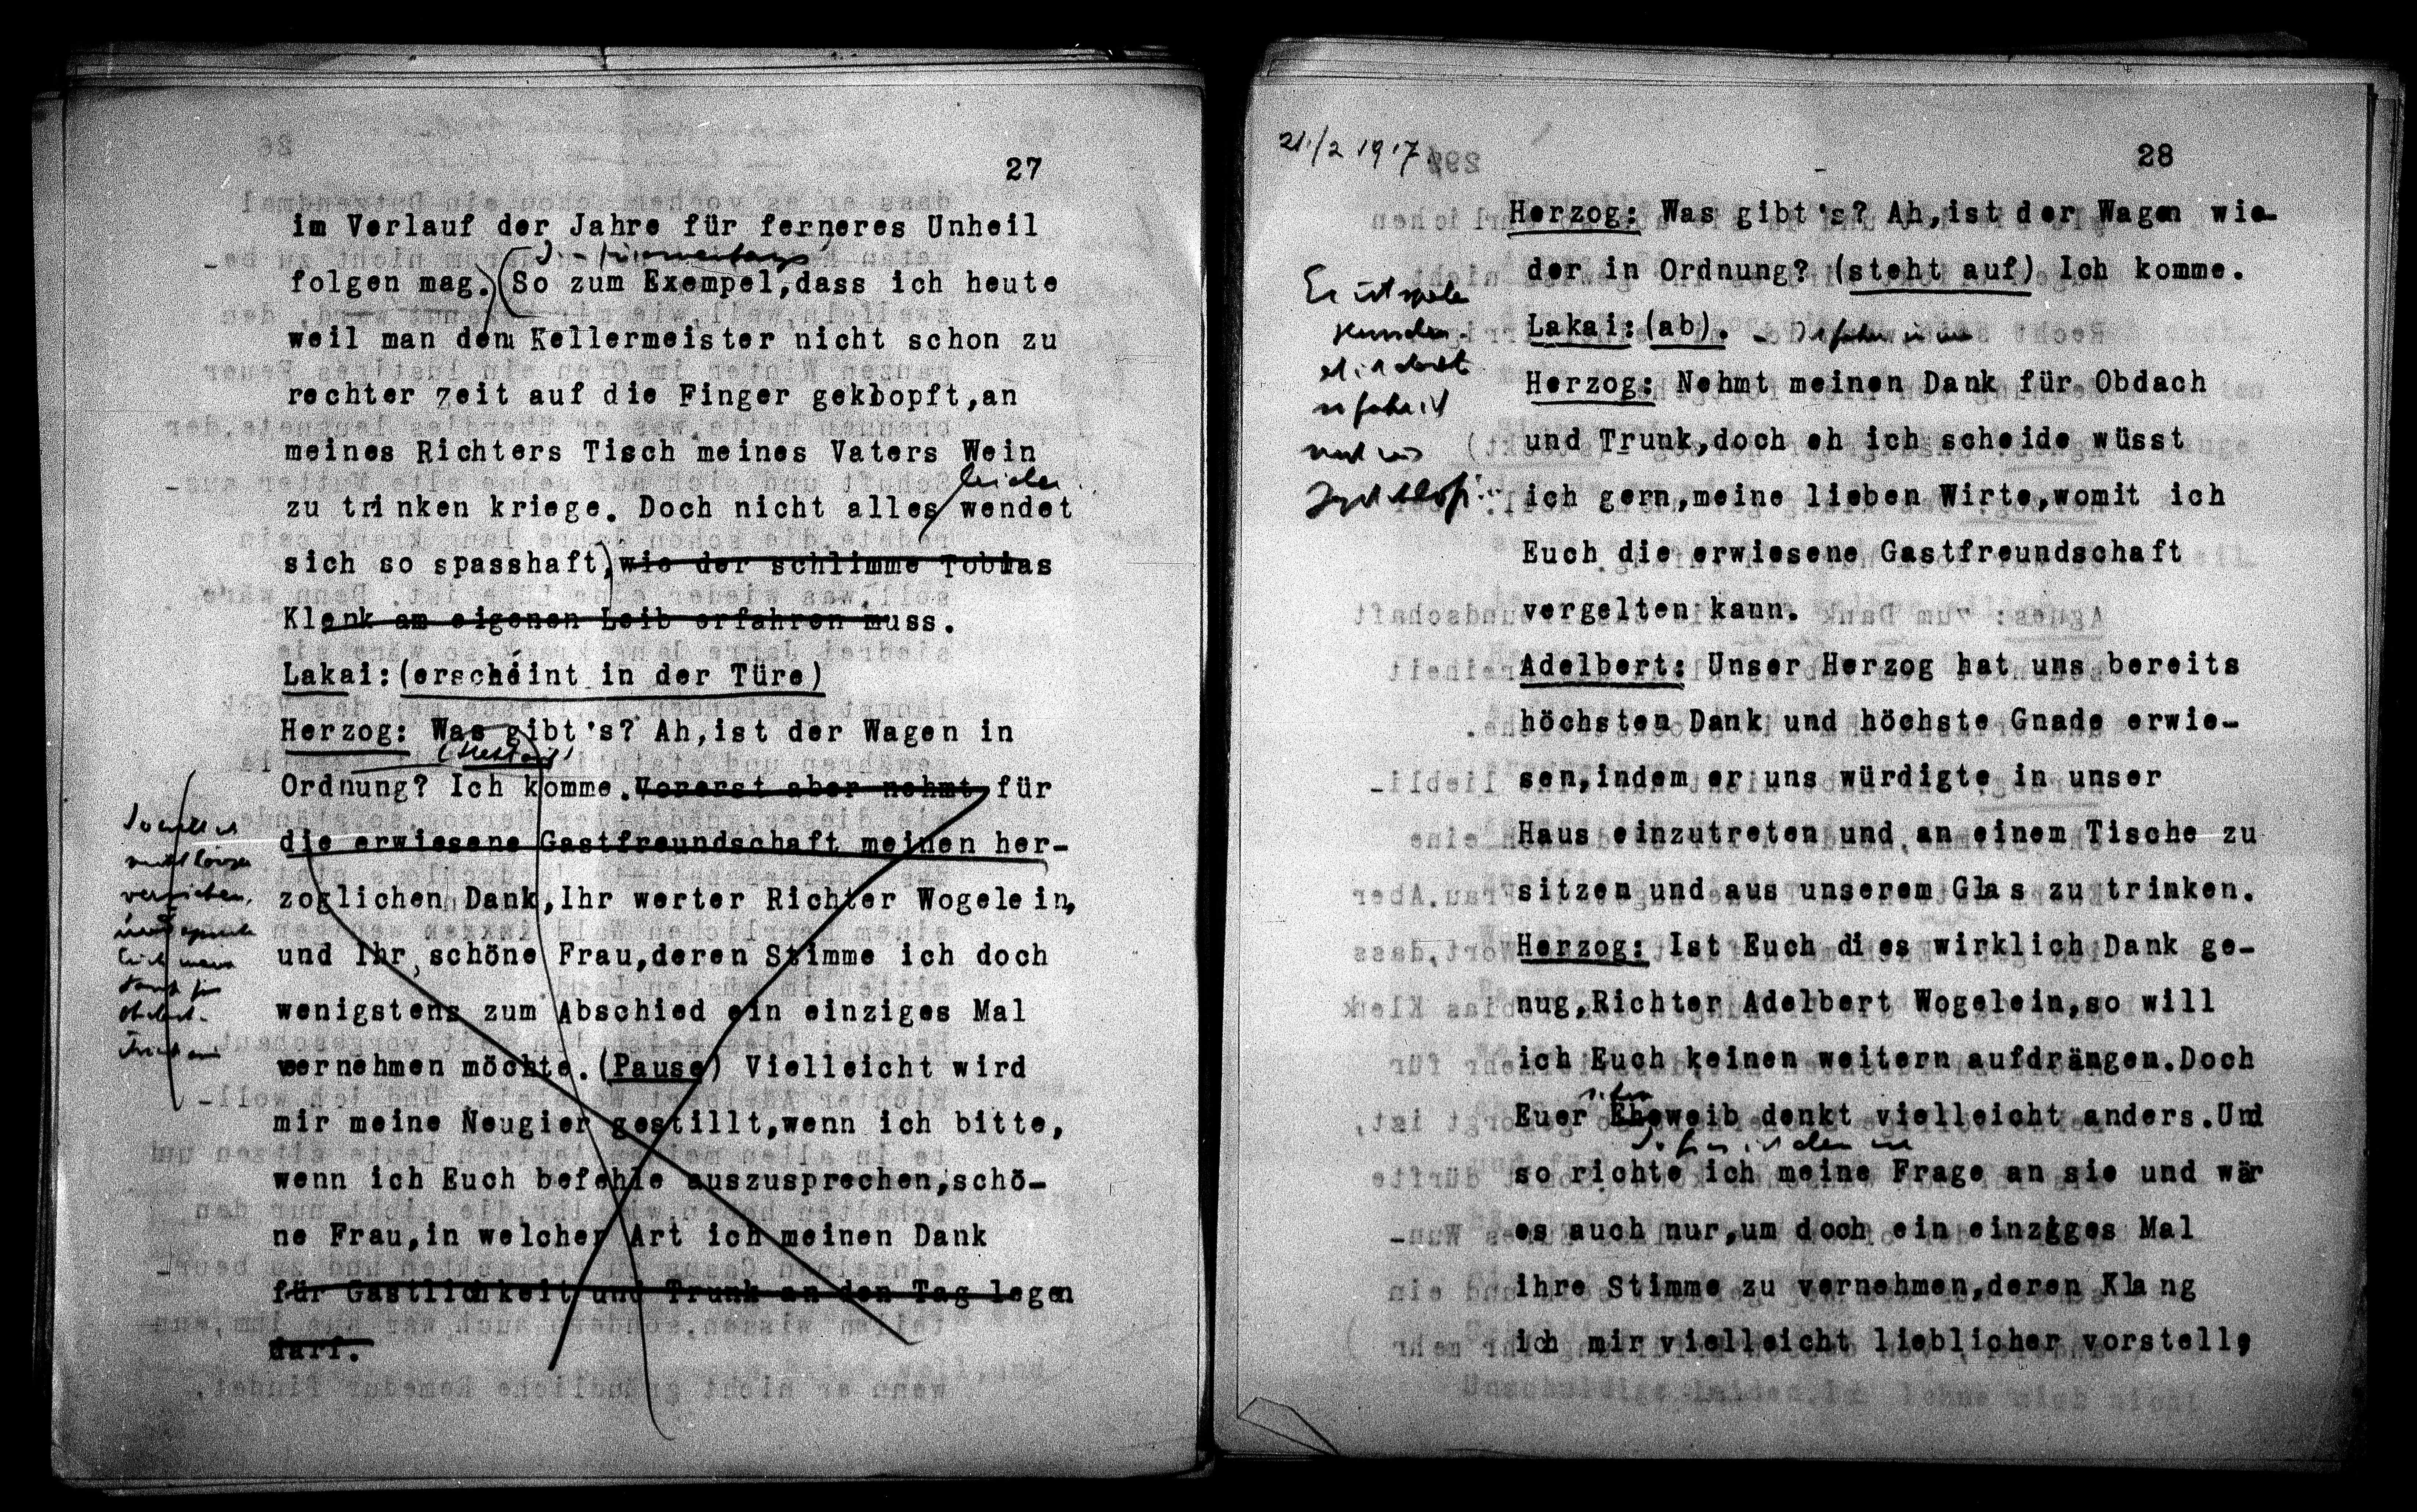 27
im Verlauf der Jahre für ferneres Unheil
folgen mag. So zum Exempel,dass ich heute
weil man dem Kellermeister nicht schon zu
rechter Zeit auf die Finger geklopft,an
meines Richters Tisch meines Vaters Wein
leider
zu trinken kriege. Doch nicht alles wendet
sich so spasshaft, wie der schlimme Tobias
Klenk am eigenen Leib erfahren muss.
Lakai:(erscheint in der Türe)
Herzog: Was gibt's? Ah,ist der Wagen in
Ordnung? Ich komme. Vorerst aber nehmt für
die erwiesene Gastfreundschaft meinen her-
zoglichen Dank,Ihr werter Richter Wogelein,
und Ihr,schöne Frau,deren Stimme ich doch
wenigstens zum Abschied ein einziges Mal
vernehmen möchte.(Pause) Vielleicht wird
mir meine Neugier gestillt,wenn ich bitte,
wenn ich Euch befehle auszusprechen,schö-
ne Frau,in welcher Art ich meinen Dank
für Gastlichkeit und Trunk an den Tag legen
darf.
21/2 1917
28
Herzog: Was gibt's? Ah,ist der Wagen wie-
der in Ordnung? (steht auf) Ich komme.
Lakai:(ab).
Herzog: Nehmt meinen Dank für Obdach
und Trunk,doch eh ich scheide wüsst
ich gern,meine lieben Wirte,womit ich
Euch die erwiesene Gastfreundschaft
vergelten kann.
Adelbert: Unser Herzog hat uns bereits
höchsten Dank und höchste Gnade erwie-
sen,indem er uns würdigte in unser
Haus einzutreten und an einem Tische zu
sitzen und aus unserem Glas zu trinken.
Herzog: Ist Euch dies wirklich Dank ge-
nug,Richter Adelbert Wogelein,so will
ich Euch keinen weitern aufdrängen.Doch
Euer Eheweib denkt vielleicht anders.Und
so richte ich meine Frage an sie und wär
es auch nur,um doch ein einziges Mal
ihre Stimme zu vernehmen,deren Klang
ich mir vielleicht lieblicher vorstell,